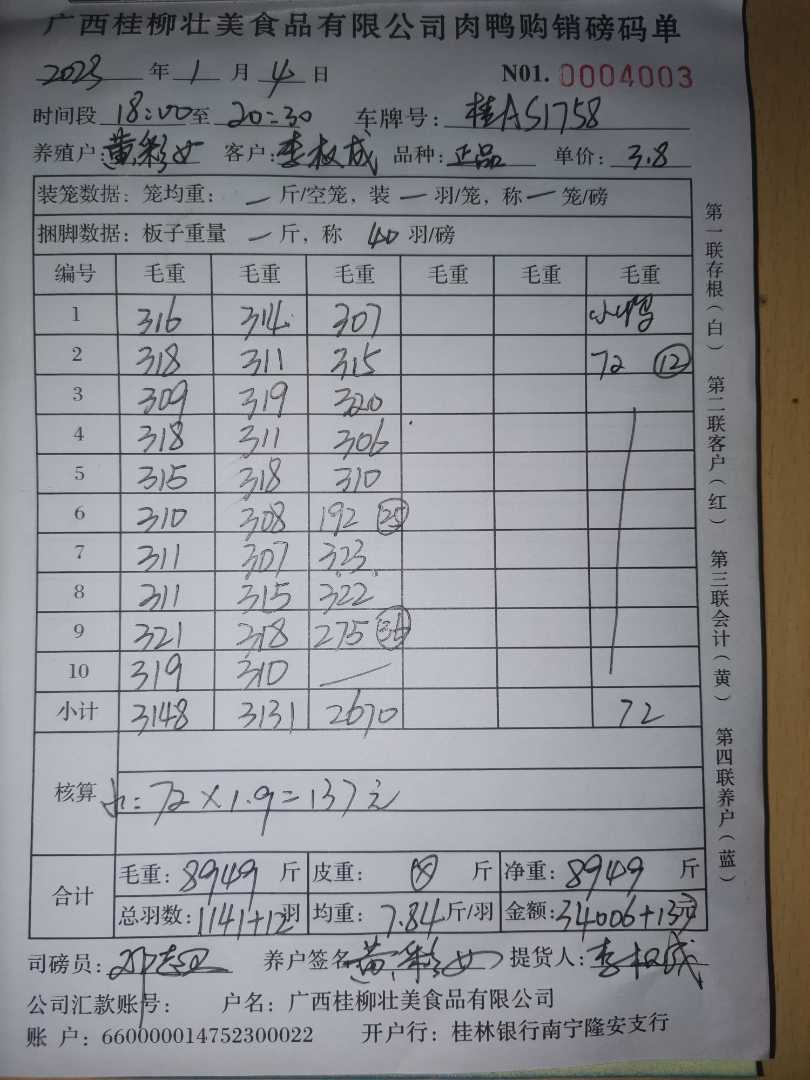 广西桂柳壮美食品有限公司肉鸭购销磅码单
2023 年 1 月 4 日 N01. 0004003
时间段 18:00 至 20:30 车牌号: 桂AS1758
养殖户: 黄彩女 客户: 李权成 品种: 正品 单价: 3.8
装笼数据: 笼均重: — 斤/空笼, 装 — 羽/笼, 称 — 笼/磅
捆脚数据: 板子重量 — 斤, 称 40 羽/磅
编号 毛重 毛重 毛重 毛重 毛重 毛重
1 316 314 307 小鸭
2 318 311 315 72 ⑫
3 309 319 320
4 318 311 306
5 315 318 310
6 310 308 192 ㉕
7 311 307 323
8 311 315 322
9 321 318 275 ㉟
10 319 310 —
小计 3148 3131 2670 72
核算 小: 72×1.9=137元
合计 毛重: 8949 斤 皮重: 斤 净重: 8949 斤
总羽数: 1141+12 羽 均重: 7.84 斤/羽 金额: 34006+137元
司磅员: 养户签名 黄彩女 提货人: 李权成
公司汇款账号: 户名: 广西桂柳壮美食品有限公司
账 户: 660000014752300022 开户行: 桂林银行南宁隆安支行
第一联存根(白) 第二联客户(红) 第三联会计(黄) 第四联养户(蓝)